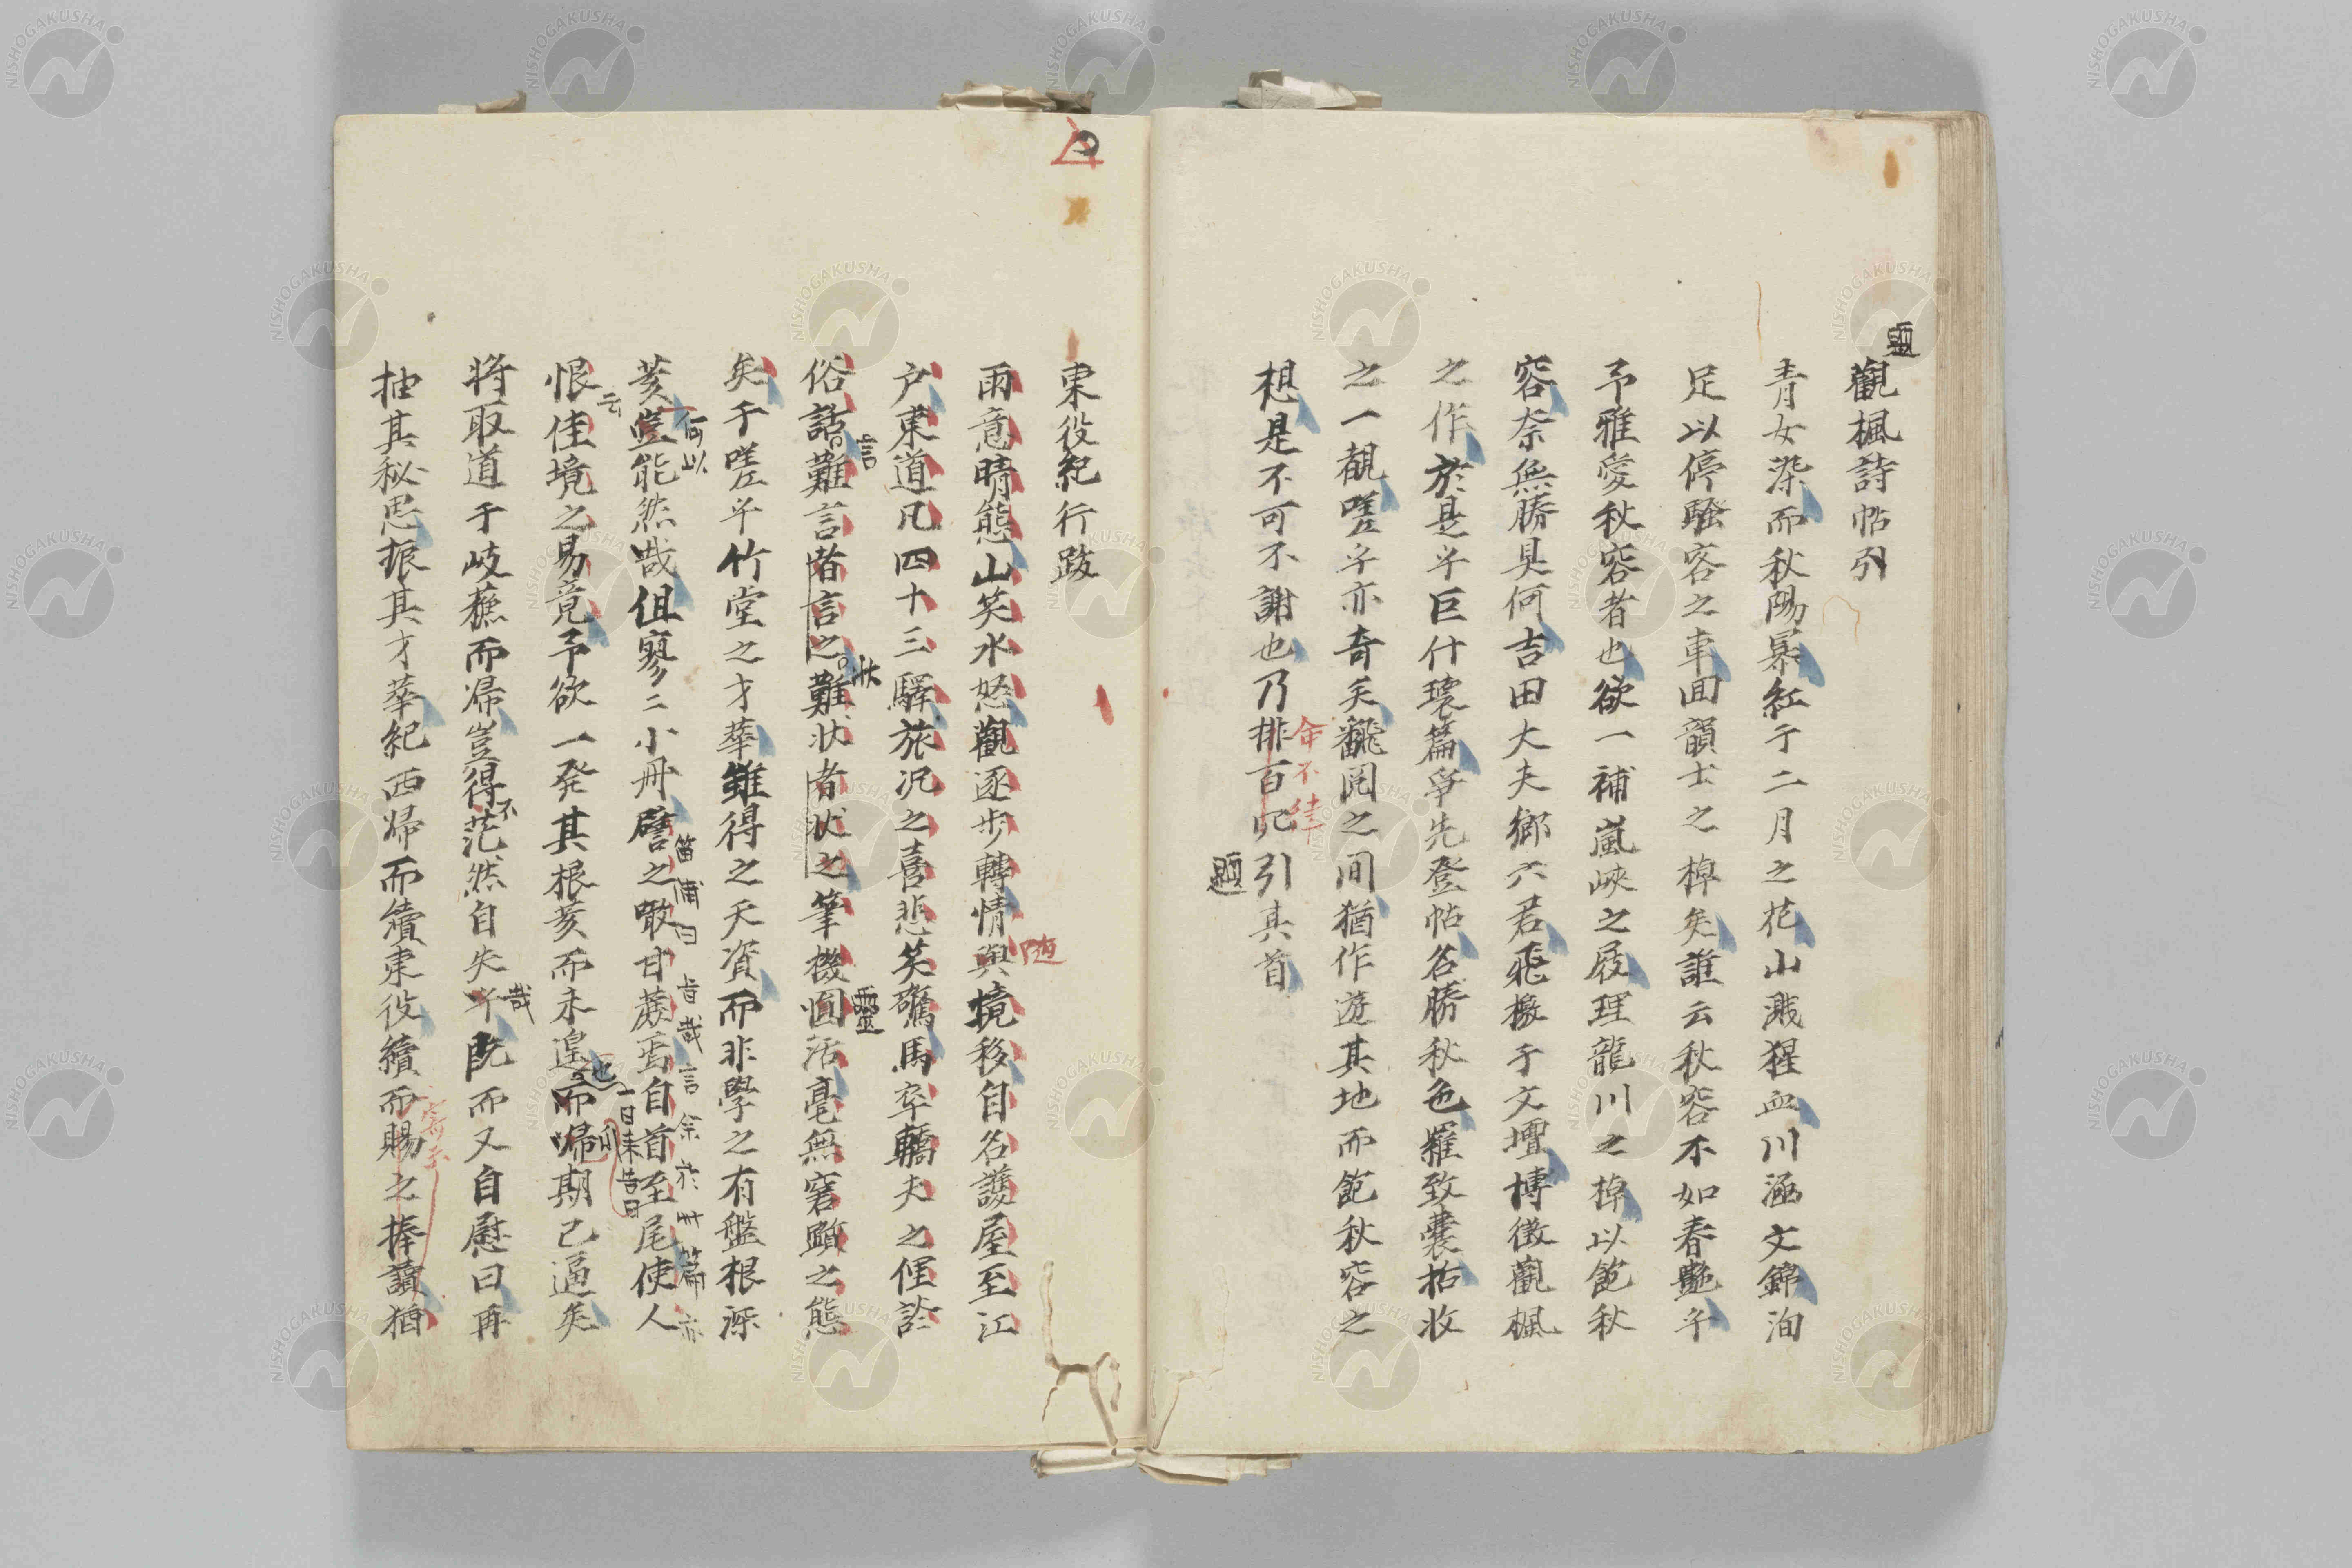 題
觀楓詩帖引
青女染而秋陽暴紅于二月之花山濺猩血川涵文錦洵
足以停騷客之車回韻士之棹矣誰云秋容不如春艷乎
予雅愛秋容者也欲一補嵐峽之屐理龍川之棹以飽秋
容奈無勝具何吉田大夫鄉六君飛檄于文壇博徵觀楓
之作於是乎巨什瓌篇爭先登帖名勝秋色羅致囊括收
之一覩嗟乎亦奇矣飜閱之間猶作遊其地而飽秋容之
想是不可不謝也乃排百引其首
命不律
題
東役紀行跋
雨意晴態山笑水怒觀逐步轉情與境移自名護屋至江
随
戶東道凡四十三驛旅況之喜悲笑驚馬卒轎夫之俚談
俗話難言者言之難狀者狀之筆機圓活毫無窘蹞之態
言
狀
靈
矣于嗟乎竹堂之才華雖得之天資而非學之有盤根深
荄豈能然哉但寥二小冊譬之噉甘蔗焉自首至尾使人
何以
笛浦曰旨哉言余於此篇亦
云
恨佳境之易竟予欲一発其根荄而未遑而帰期已逼矣
也
一日来告曰
将取道于岐蘇而帰豈得茫然自失乎既而又自慰曰再
不
哉
抽其秘思振其才華紀西帰而續東役續而賜之捧讀猶
寄示